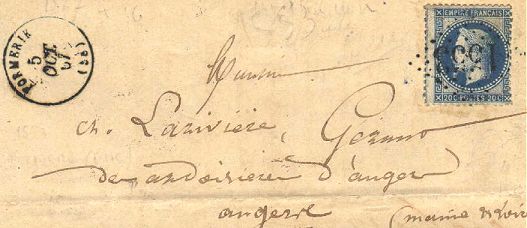 FORMERIE (58)
5
OCT.
67
EMPIRE FRANÇAIS
20C POSTES 20C
Monsieur
Ch. Larivière, Gérant
des ardoisières d'Angers
angers
(maine & Loire